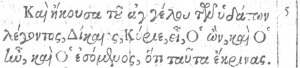 Καὶ ἤκουσα τȣ͂ ἀγγέλου τῶν ὑδάτων 5
λέγοντος, Δίκαιος, Κύριε, εἶ, Ὁ ὢν, καὶ Ὁ
ἦν, καὶ Ὁ ἐσόμενος, ὅτι ταῦτα ἔκρινας.